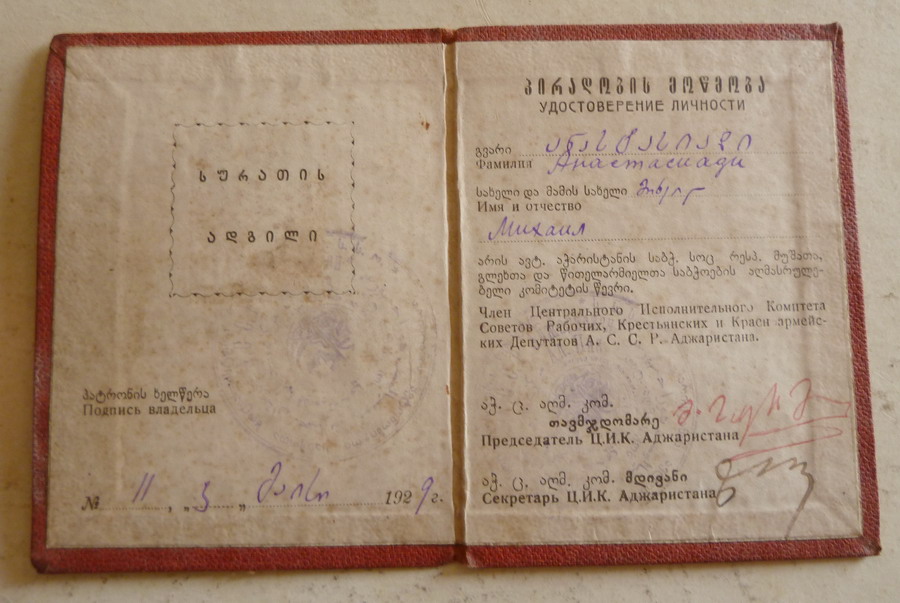 სურათის
ადგილი
პატრონის ხელწერა
Подпись владельца
№ 11, „3“ მაისი 1929 г.
პირადობის მოწმობა
УДОСТОВЕРЕНИЕ ЛИЧНОСТИ
გვარი ანასტასიადი
Фамилия Анастасиади
სახელი და მამის სახელი
Имя и отчество
Михаил
არის ავტ. აჭარისტანის საბჭ. სოც. რესპ. მუშათა,
გლეხთა და წითელარმიელთა საბჭოების აღმასრულე-
ბელი კომიტეტის წევრი.
Член Центрального Исполнительного Комитета
Советов Рабочих, Крестьянских и Красн армейс-
ких Депутатов А. С. С. Р. Аджаристана.
აჭ. ც. აღმ. კომ.
თავმჯდომარე
Председатель Ц.И.К. Аджаристана
აჭ. ც. აღმ. კომ. მდივანი
Секретарь Ц.И.К. Аджаристана